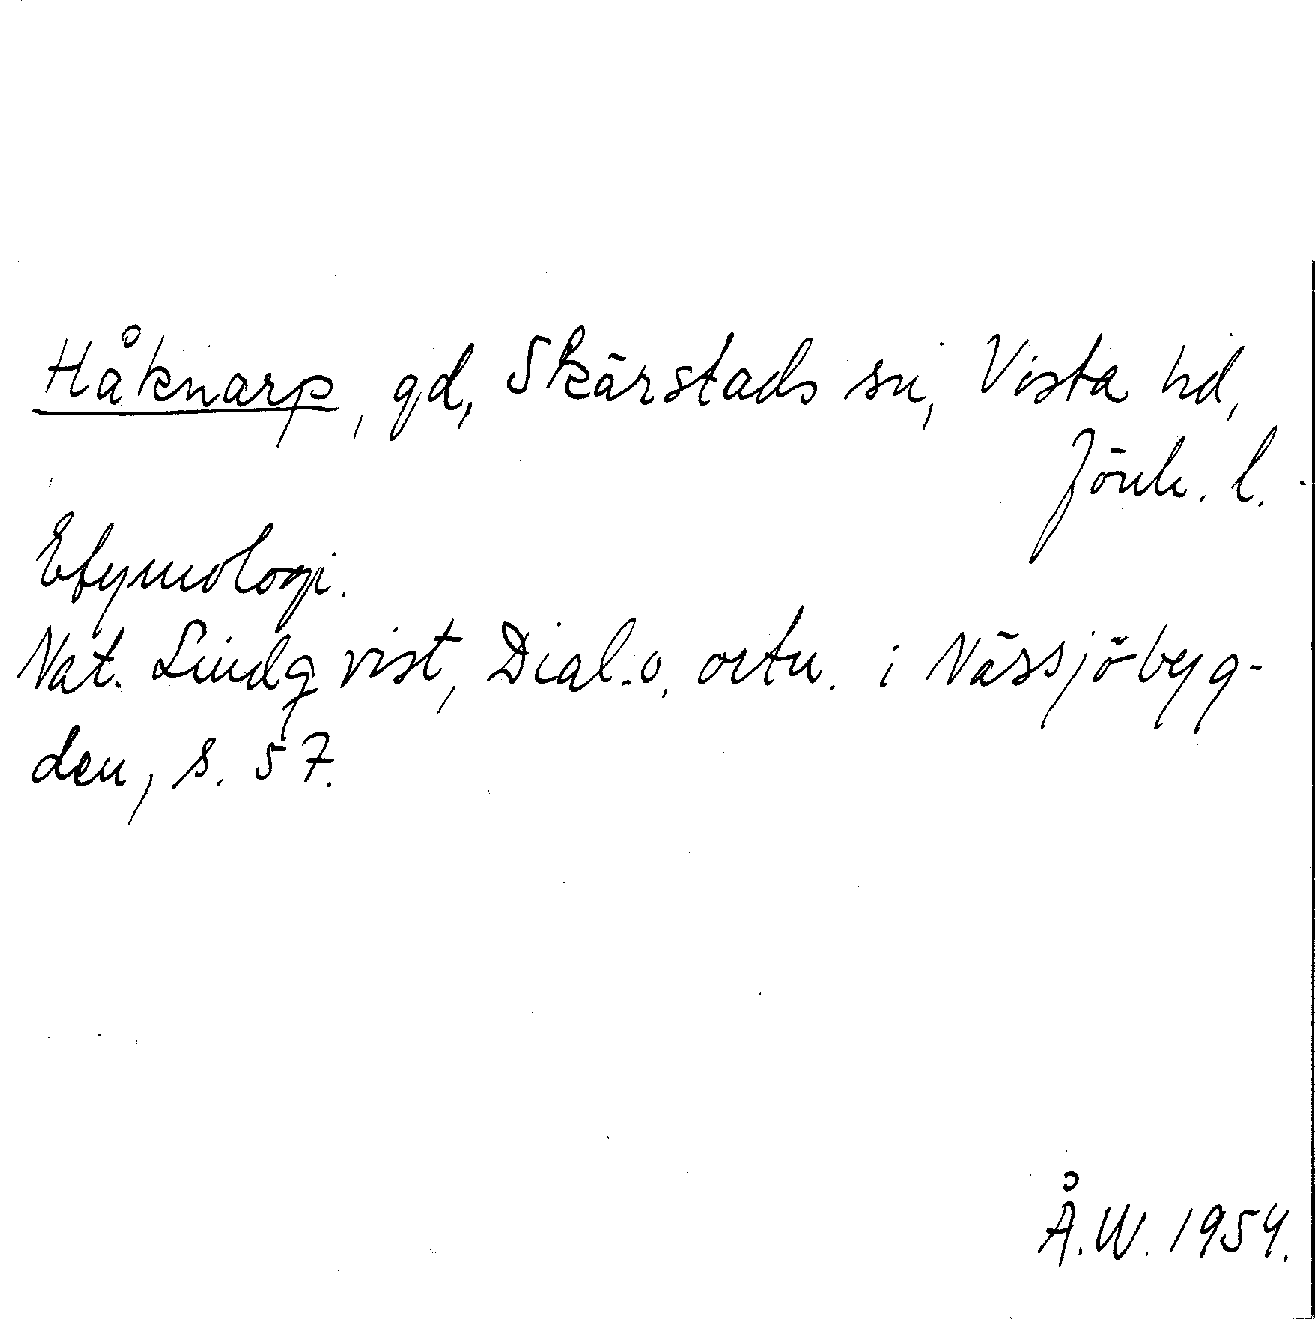 Håknarp, gd, Skärstads sn, Vista hd,
Jönk. l.
Etymologi.
Nat. Lindqvist, Dial. o. ortn. i Nässjöbyg-
den, s. 57.
Å.W. 1954.